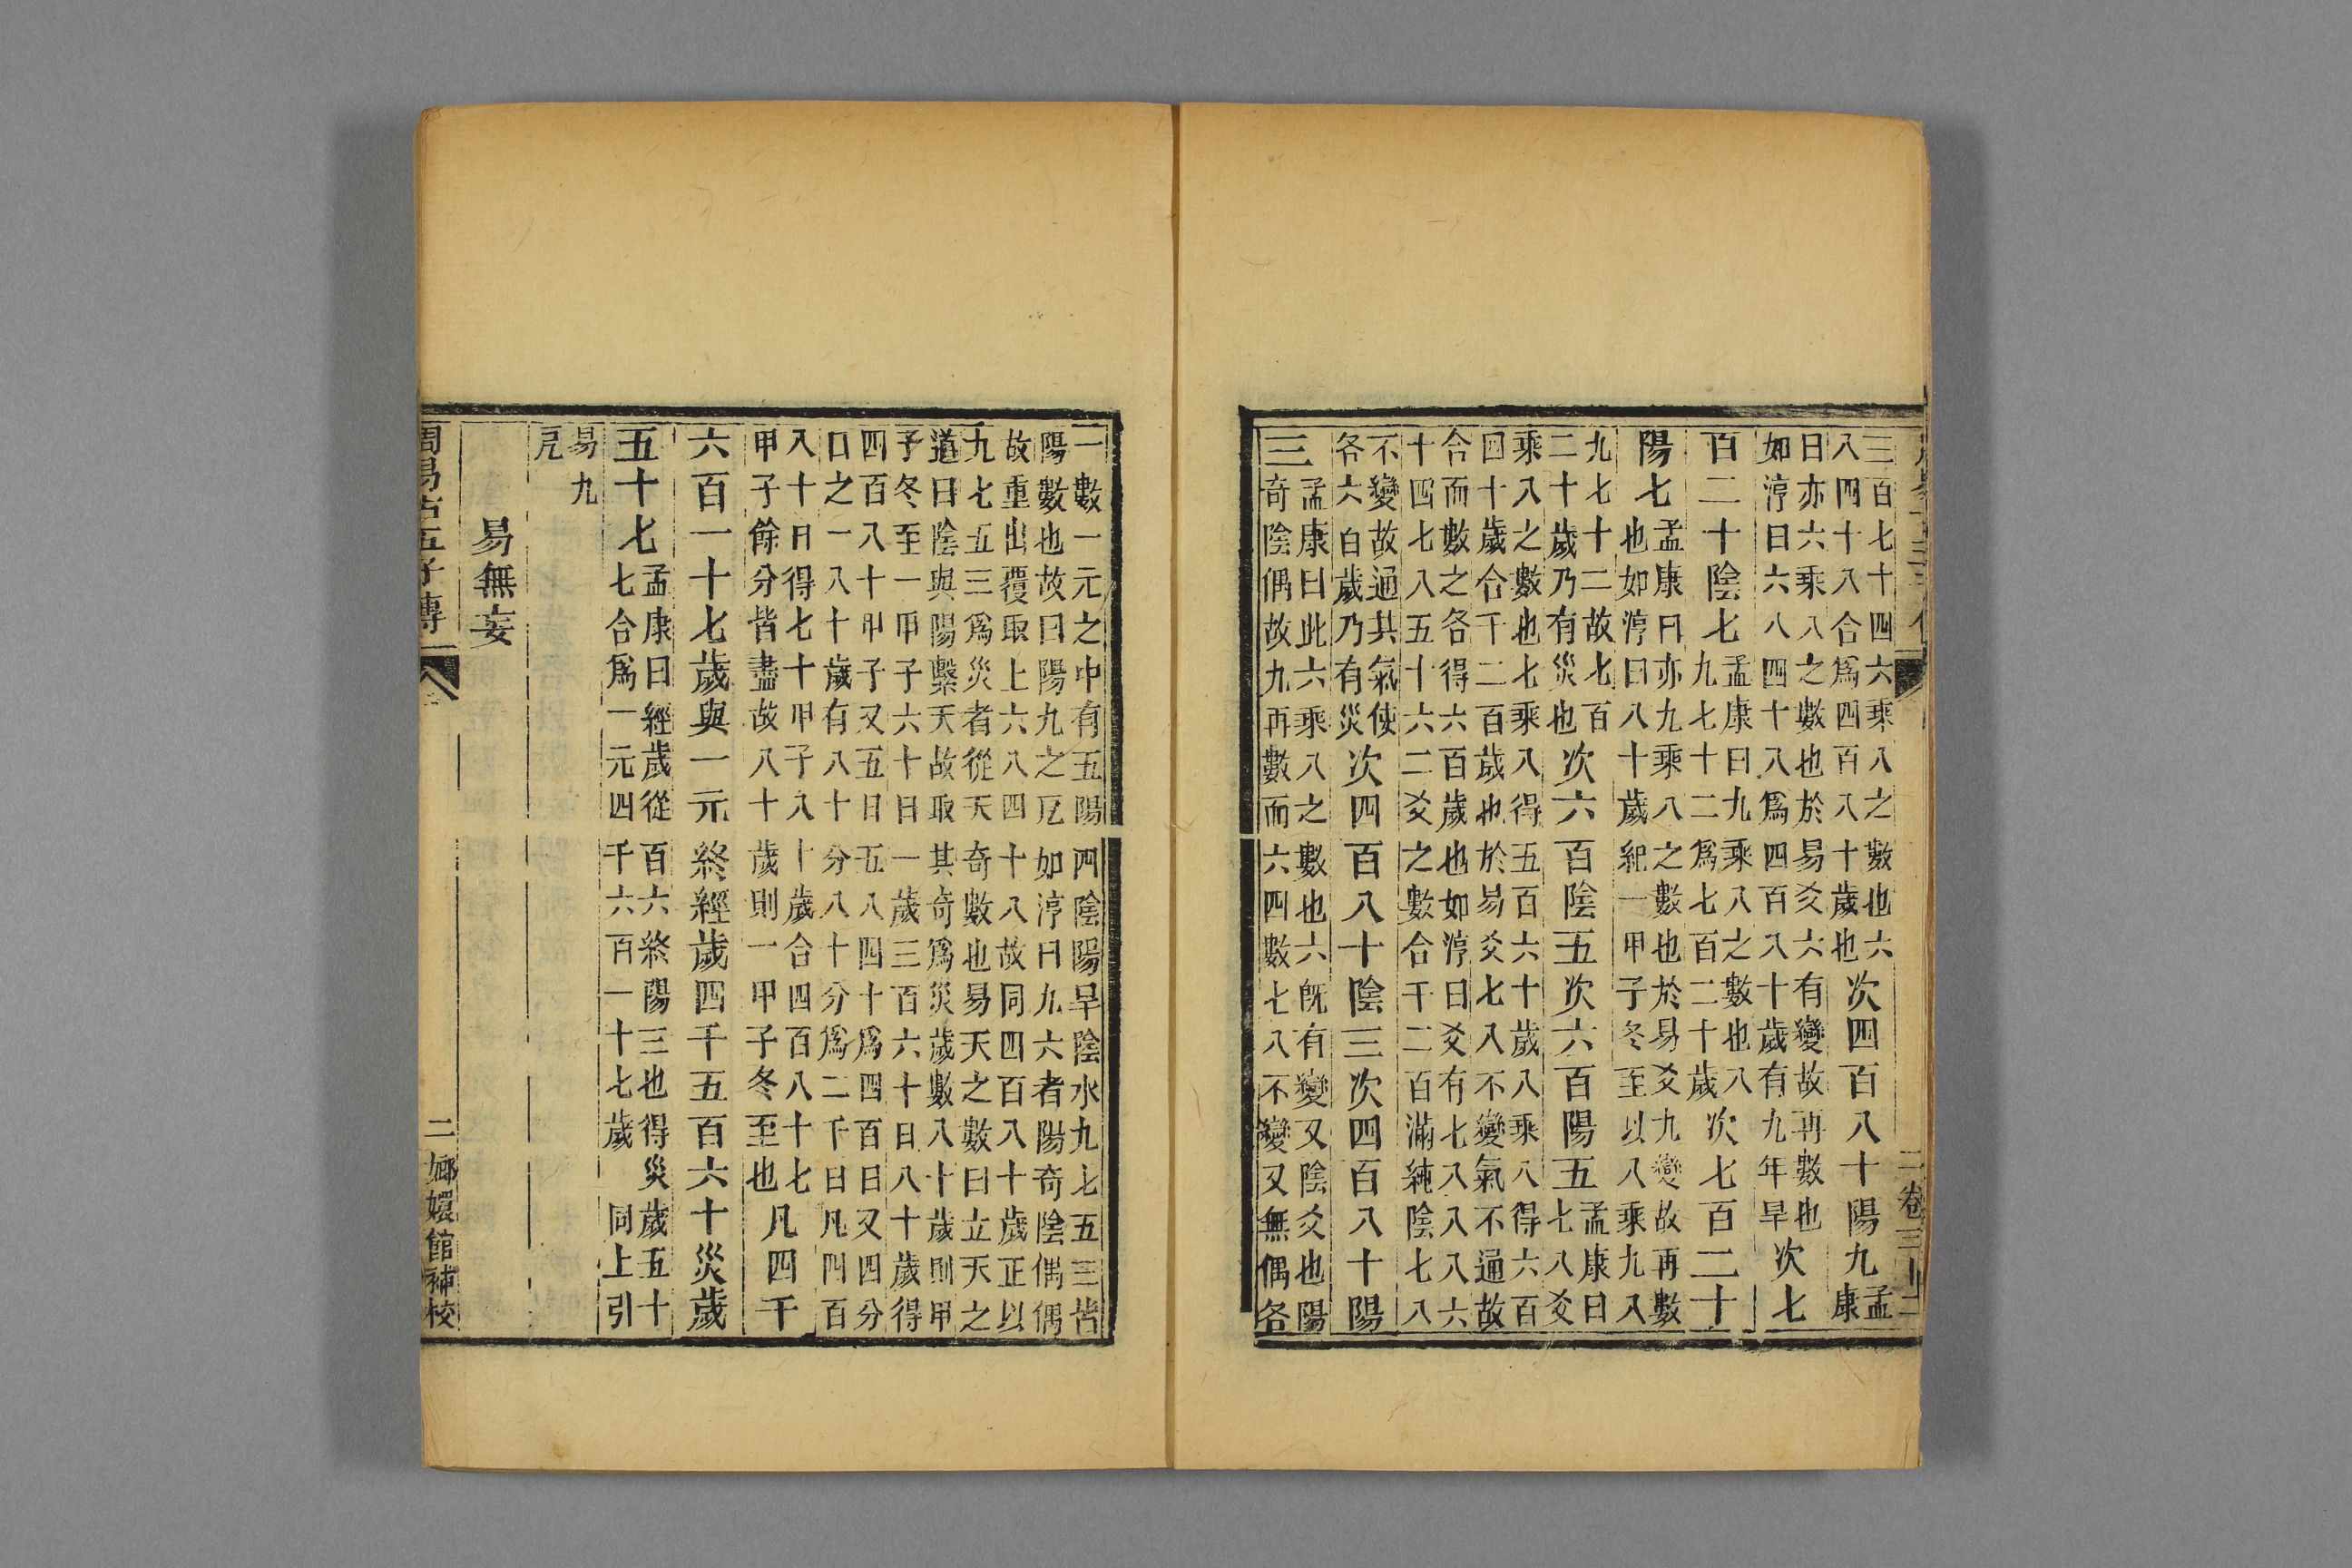 二 卷三十二
三百七十四六乘八之數也六
八四十八合爲四百八十歲也
次四百八十陽九
孟
康
日亦六乘八之數也於易爻六有變故再數也
如淳曰六八四十八爲四百八十歲有九年旱
次七
百二十陰七
孟康曰九乘八之數也八
九七十二爲七百二十歲
次七百二十
陽七
孟康曰亦九乘八之數也於易爻九變故再數
也如淳曰八十歲紀一甲子冬至以八乘九八
九七十二故七百
二十歲乃有災也
次六百陰五次六百陽五
孟康曰
七八爻
乘八之數也七乘八得五百六十歲八乘八得六百
四十歲合千二百歲也於易爻七八不變氣不通故
合而數之各得六百歲也如淳曰爻有七八八八六
十四七八五十六二爻之數合千二百滿純陰七八
不變故通其氣使
各六百歲乃有災
次四百八十陰三次四百八十陽
三
孟康曰此六乘八之數也六旣有變又陰爻也陽
奇陰偶故九再數而六四數七八不變又無偶各
一數一元之中有五陽四陰陽旱陰水九七五三皆
陽數也故曰陽九之戹如淳曰九六者陽奇陰偶偶
故重出覆取上六八四十八故同四百八十歲正以
九七五三爲災者從天奇數也易天之數曰立天之
道曰陰與陽繫天故取其奇爲災歲數八十歲則甲
子冬至一甲子六十日一歲三百六十日八十歲得
四百八十甲子又五日五八四十爲四百日又四分
日之一八十歲有八十分八十分爲二千日凡四百
八十日得七十甲子八十歲合四百八十七
甲子餘分皆盡故八十歲則一甲子冬至也
凡四千
六百一十七歲與一元終經歲四千五百六十災歲
五十七
孟康曰經歲從百六終陽三也得災歲五十
七合爲一元四千六百一十七歲 同上引
易九
戹
易無妄
周易古五子傳 二 嫏嬛館補校